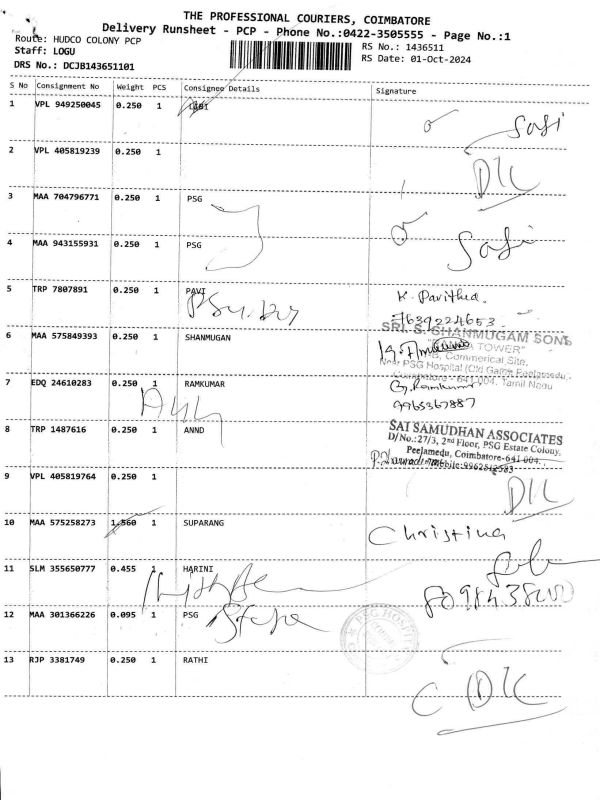 THE PROFESSIONAL COURIERS, COIMBATORE
Delivery Runsheet - PCP - Phone No.:0422-3505555 - Page No.:1
Route: HUDCO COLONY PCP
RS No.: 1436511
Staff: LOGU
RS Date: 01-Oct-2024
DRS No.: DCJB143651101
S No Consignment No Weight PCS Consignee Details Signature
1 VPL 949250045 0.250 1
2 VPL 405819239 0.250 1
3 MAA 704796771 0.250 1 PSG
4 MAA 943155931 0.250 1 PSG
5 TRP 7807891 0.250 1 PAVI K. Pavithra.
7639224653
SRI. S. SHANMUGAM SONS
6 MAA 575849393 0.250 1 SHANMUGAN
TOWER"
Commerical Site,
Near PSG Hospital
Coimbatore - 641 004. Tamil Nadu
7 EDQ 24610283 0.250 1 RAMKUMAR G. Ramkumar
9965367887
8 TRP 1487616 0.250 1 ANND
SAI SAMUDHAN ASSOCIATES
D/No.:27/3, 2nd Floor, PSG Estate Colony,
Peelamedu, Coimbatore-641 004.
Mobile:9962512583
9 VPL 405819764 0.250 1
10 MAA 575258273 1.560 1 SUPARANG Christina
11 SLM 355650777 0.455 1 HARINI
12 MAA 301366226 0.095 1 PSG
PSG HOSPITALS
13 RJP 3381749 0.250 1 RATHI